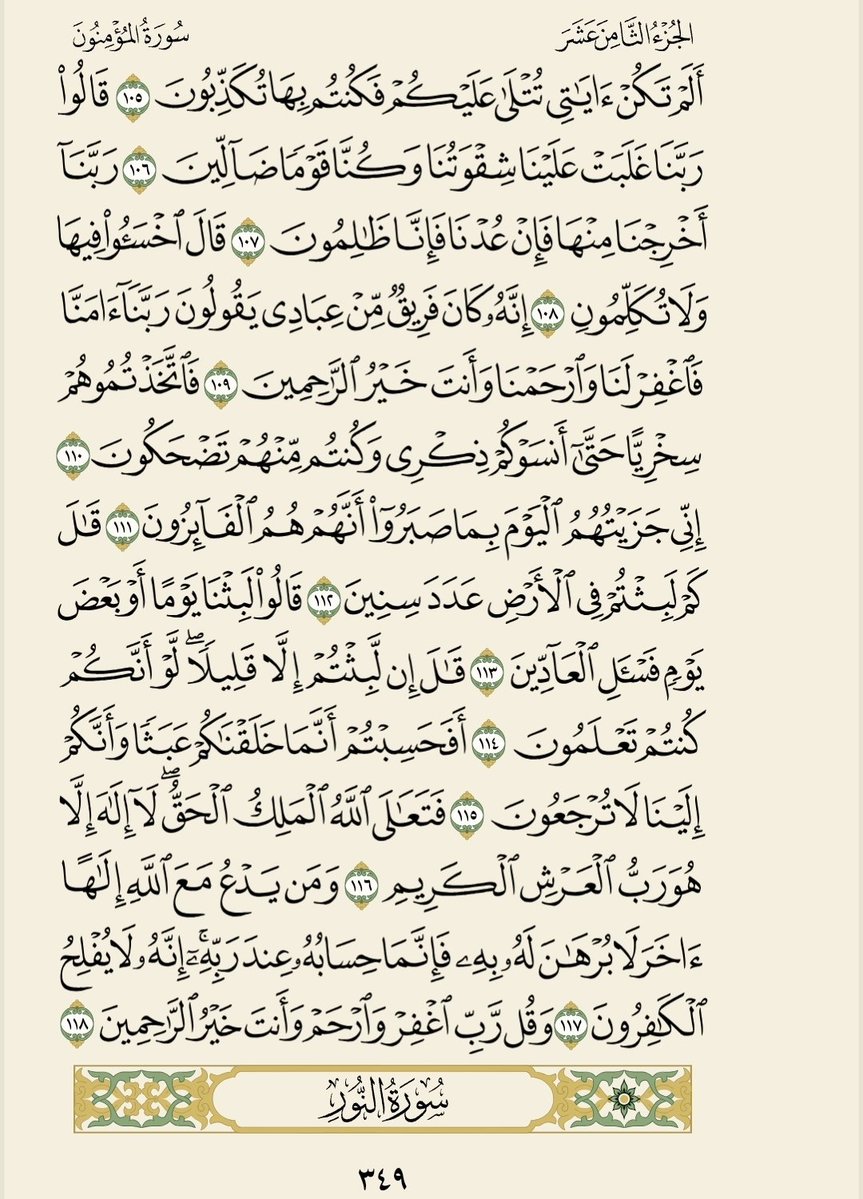 الجُزْءُ الثَّامِنَ عَشَرَ
سُورَةُ المُؤْمِنُونَ
أَلَمۡ تَكُنۡ ءَايَٰتِي تُتۡلَىٰ عَلَيۡكُمۡ فَكُنتُم بِهَا تُكَذِّبُونَ ١٠٥ قَالُواْ
رَبَّنَا غَلَبَتۡ عَلَيۡنَا شِقۡوَتُنَا وَكُنَّا قَوۡمٗا ضَآلِّينَ ١٠٦ رَبَّنَآ
أَخۡرِجۡنَا مِنۡهَا فَإِنۡ عُدۡنَا فَإِنَّا ظَٰلِمُونَ ١٠٧ قَالَ ٱخۡسَـُٔواْ فِيهَا
وَلَا تُكَلِّمُونِ ١٠٨ إِنَّهُۥ كَانَ فَرِيقٞ مِّنۡ عِبَادِي يَقُولُونَ رَبَّنَآ ءَامَنَّا
فَٱغۡفِرۡ لَنَا وَٱرۡحَمۡنَا وَأَنتَ خَيۡرُ ٱلرَّٰحِمِينَ ١٠٩ فَٱتَّخَذۡتُمُوهُمۡ
سِخۡرِيًّا حَتَّىٰٓ أَنسَوۡكُمۡ ذِكۡرِي وَكُنتُم مِّنۡهُمۡ تَضۡحَكُونَ ١١٠
إِنِّي جَزَيۡتُهُمُ ٱلۡيَوۡمَ بِمَا صَبَرُوٓاْ أَنَّهُمۡ هُمُ ٱلۡفَآئِزُونَ ١١١ قَٰلَ
كَمۡ لَبِثۡتُمۡ فِي ٱلۡأَرۡضِ عَدَدَ سِنِينَ ١١٢ قَالُواْ لَبِثۡنَا يَوۡمًا أَوۡ بَعۡضَ
يَوۡمٖ فَسۡـَٔلِ ٱلۡعَآدِّينَ ١١٣ قَٰلَ إِن لَّبِثۡتُمۡ إِلَّا قَلِيلٗاۖ لَّوۡ أَنَّكُمۡ
كُنتُمۡ تَعۡلَمُونَ ١١٤ أَفَحَسِبۡتُمۡ أَنَّمَا خَلَقۡنَٰكُمۡ عَبَثٗا وَأَنَّكُمۡ
إِلَيۡنَا لَا تُرۡجَعُونَ ١١٥ فَتَعَٰلَى ٱللَّهُ ٱلۡمَلِكُ ٱلۡحَقُّۖ لَآ إِلَٰهَ إِلَّا
هُوَ رَبُّ ٱلۡعَرۡشِ ٱلۡكَرِيمِ ١١٦ وَمَن يَدۡعُ مَعَ ٱللَّهِ إِلَٰهًا
ءَاخَرَ لَا بُرۡهَٰنَ لَهُۥ بِهِۦ فَإِنَّمَا حِسَابُهُۥ عِندَ رَبِّهِۦٓۚ إِنَّهُۥ لَا يُفۡلِحُ
ٱلۡكَٰفِرُونَ ١١٧ وَقُل رَّبِّ ٱغۡفِرۡ وَٱرۡحَمۡ وَأَنتَ خَيۡرُ ٱلرَّٰحِمِينَ ١١٨
سُورَةُ النُّورِ
٣٤٩